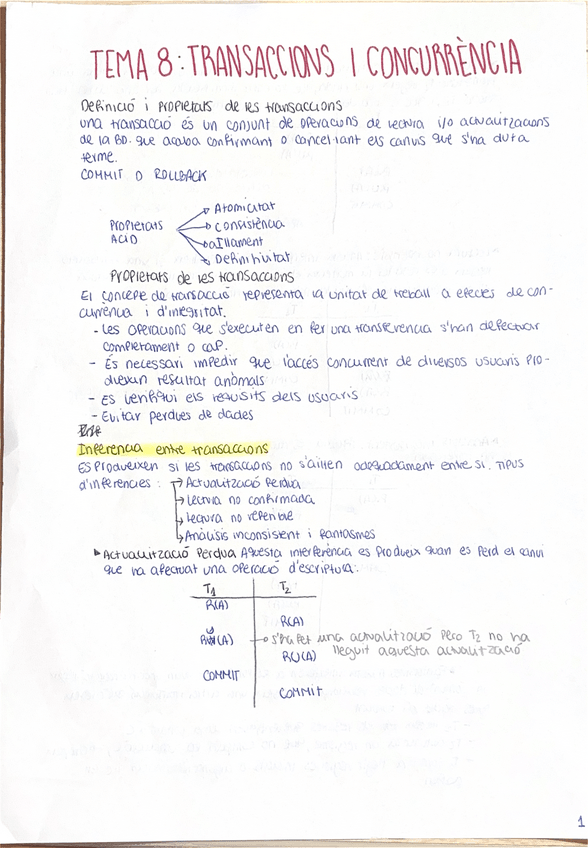 TEMA 8: TRANSACCIONS I CONCURRÈNCIA
Definició i propietats de les transaccions
una transacció és un conjunt de operacions de lectura i/o actualitzacions
de la BD. que acaba confirmant o cancel·lant els canvis que s'ha dut a
terme.
COMMIT O ROLLBACK
Atomicitat
PROPIETATS
Consistència
ACID
aïllament
Definitivitat
Propietats de les transaccions
El concepte de transacció representa la unitat de treball a efectes de con-
currència i d'integritat.
- Les operacions que s'executen en fer una transferencia s'han defectuar
completament o cap.
- És necessari impedir que l'accés concurrent de diversos usuaris pro-
dueixin resultat anòmals
- Es verifiqui els requisits dels usuaris
- Evitar perdues de dades
Inferencia entre transaccions
ES Produeixen si les transaccions no s'aïllen adequadament entre si. TIPUS
d'inferències: → Actualització perdua
→ Lectura no confirmada
→ Lectura no repetible
→ Anàlisis inconsistent i fantasmes
▶ Actualització Perdua Aquesta interferència es produeix quan es perd el canvi
que ha efectuat una operació d'escriptura:
T1 T2
R(A)
R(A)
(A) s'ha fet una actualització pero T2 no ha
RU(A) lleguit aquesta actualització
COMMIT
COMMIT
1